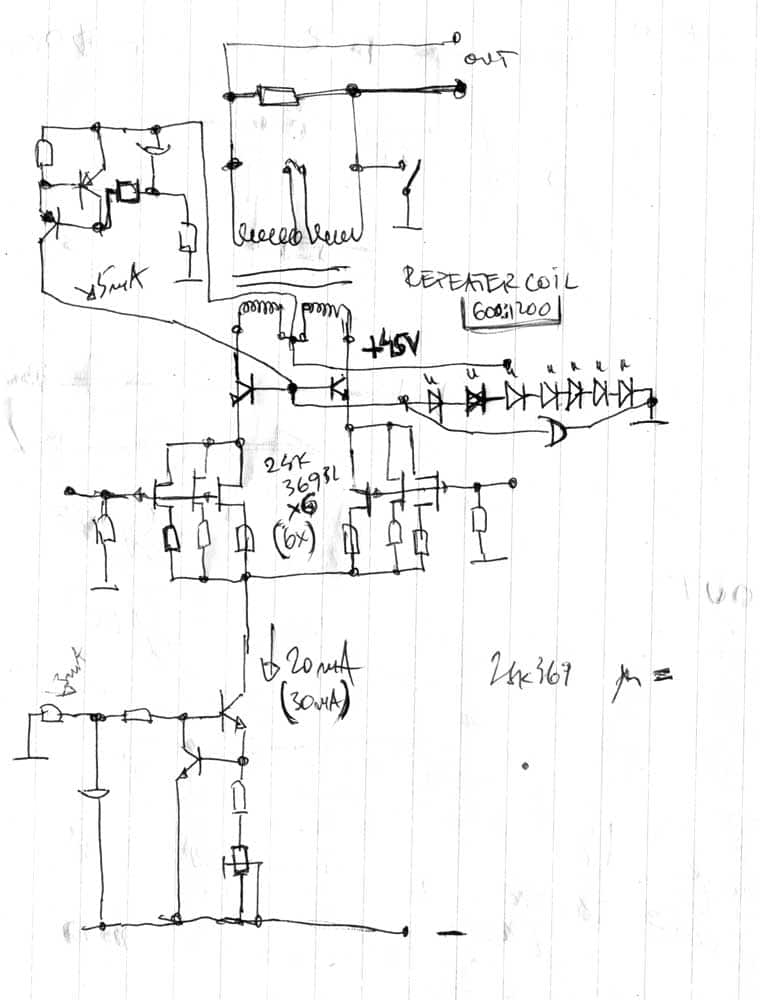 OUT
5mA
REPEATER COIL
600:1200
+45V
2SK
369BL
x6
(6x)
20mA
(30mA)
3mA
2SK369 μ =
-